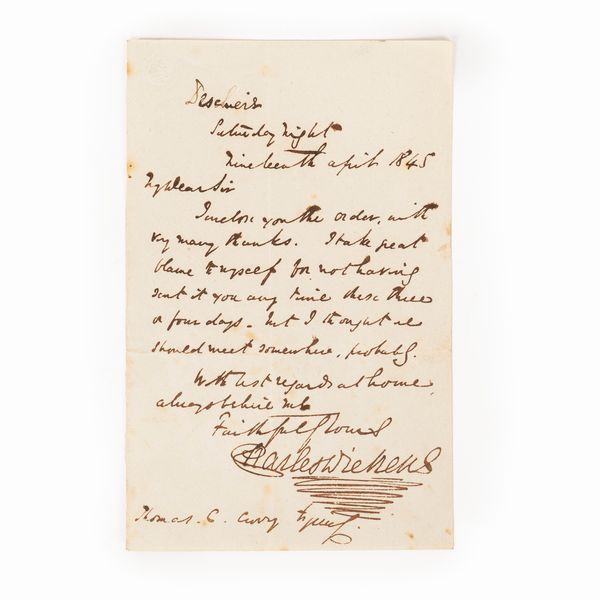 Meurice's
Saturday Night
Nineteenth April 1845
My Dear Sir
I inclose you the order, with
very many thanks. I take great
blame to myself for not having
sent it you any time these three
or four days. But I thought we
should meet somewhere, probably.
With best regards at home
always believe me
Faithfully Yours
Charles Dickens
Thomas C. Curry Esquire.